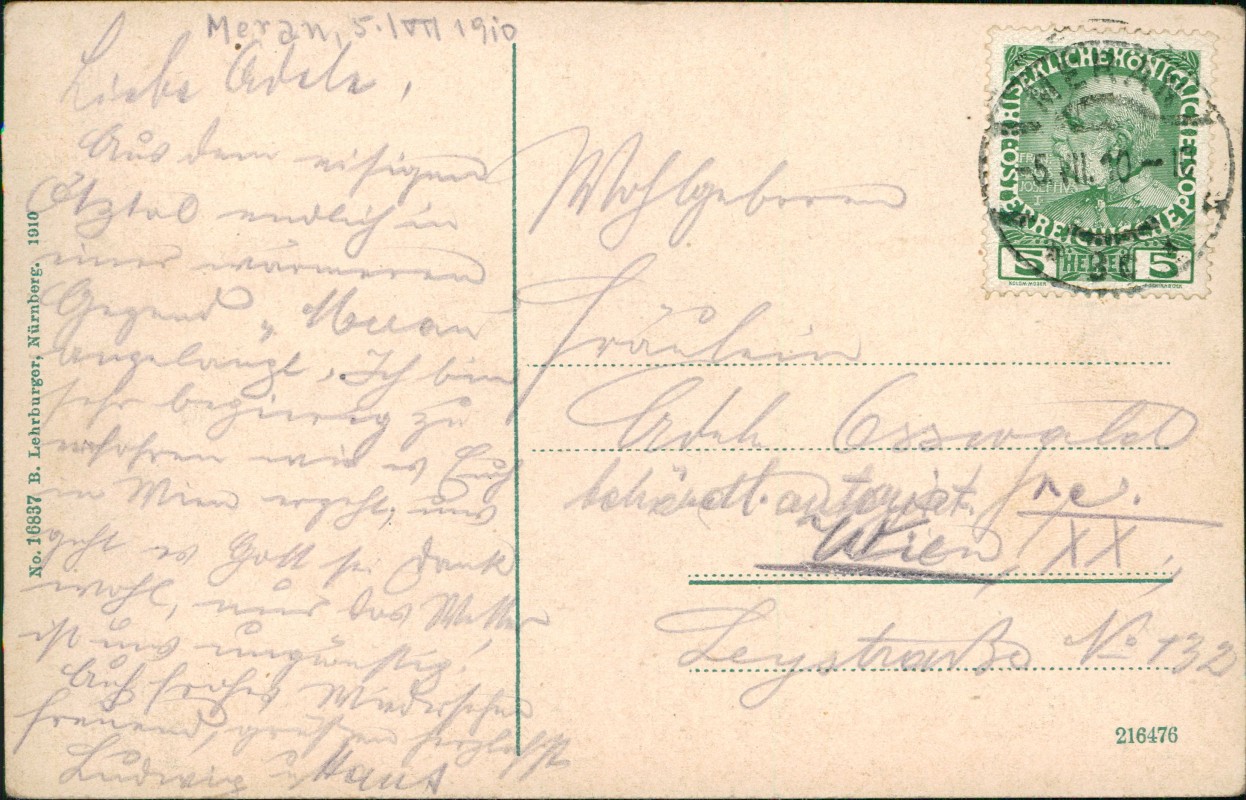 Meran, 5./VII 1910
Liebe Adele,
Aus dem eisigen
Ötztal endlich in
einer wärmeren
Gegend, Meran
angelangt. Ich bin
sehr begierig zu
erfahren wie es Euch
in Wien ergeht, uns
geht es Gott sei Dank
wohl, nur das Wetter
ist uns ungünstig.
Auf frohes Wiedersehen
freuend, grüßen herzlichst
Ludwig u Hans
No. 16837 B. Lehrburger, Nürnberg. 1910
KAISERLICHE KÖNIGLICHE
ÖSTERREICHISCHE POST
FRANZ
JOSEF I
5 HELLER 5
MERAN
-5.VII.10-
Wohlgeboren
Fräulein
Adele Osswald
behördl. autorist.
Wien, XX,
Leystraße No 132
216476